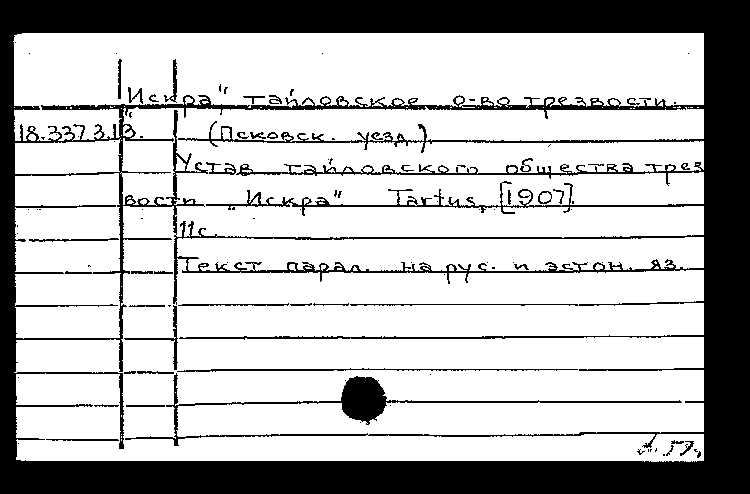 "Искра", тайловское о-во трезвости.
18.337.3.13. (Псковск. уезд).
Устав тайловского общества трез
вости „Искра". Tartus, [1907].
11с.
Текст парал. на рус. и эстон. яз.